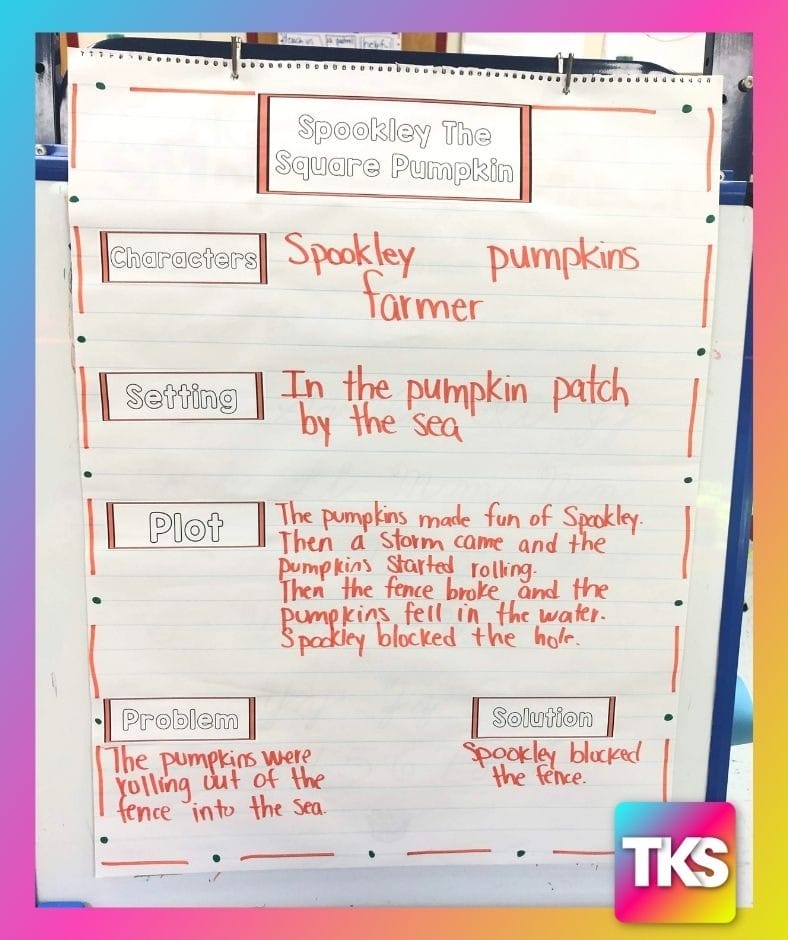 teach us
helpful
Spookley The
Square Pumpkin
Characters
Spookley pumpkins
farmer
Setting
In the pumpkin patch
by the sea
Plot
The pumpkins made fun of Spookley.
Then a storm came and the
pumpkins started rolling.
Then the fence broke and the
pumpkins fell in the water.
Spookley blocked the hole.
Problem
The pumpkins were
rolling out of the
fence into the sea.
Solution
Spookley blocked
the fence.
TKS